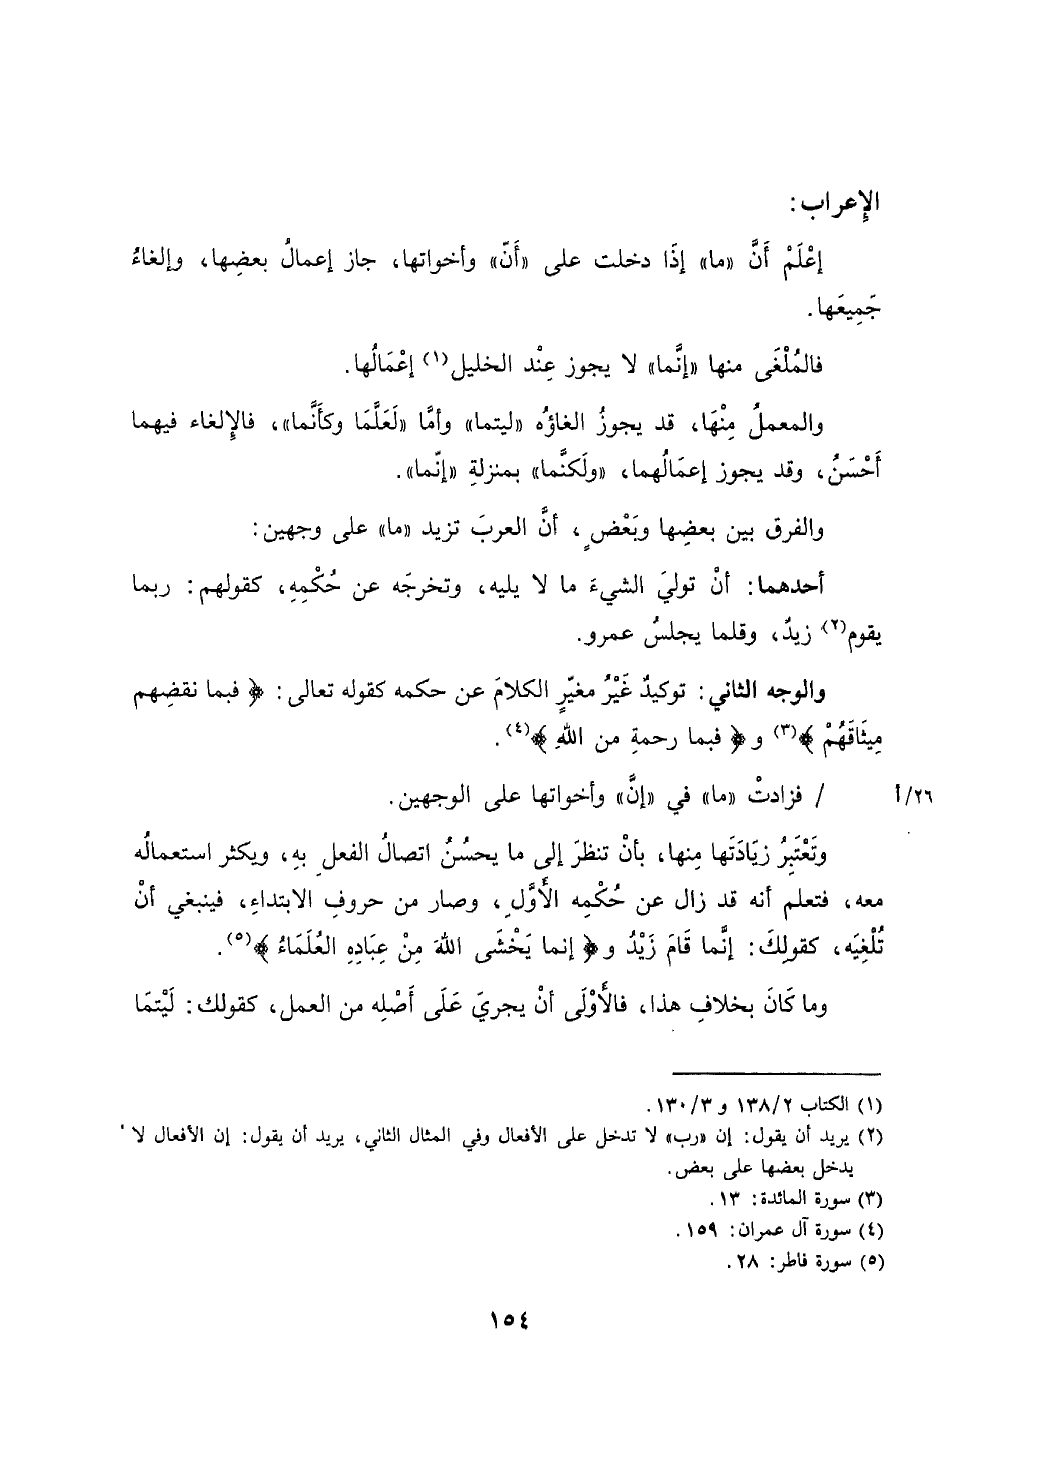 الإعراب:
إعْلَمْ أَنَّ «ما» إذَا دخلت على «أَنّ» وأخواتها، جاز إعمالُ بعضِها، وإلغاءُ
جَمِيعَها.
فالمُلْغَى منها «إنَّما» لا يجوز عِنْد الخليل(١) إعْمَالُها.
والمعملُ مِنْهَا، قد يجوزُ الغاؤه «ليتما» وأمَّا «لَعَلَّمَا وكأَنَّما»، فالإلغاء فيهما
أَحْسَنُ، وقد يجوز إعمَالُهما، «ولَكنَّما» بمنزلةِ «إنّما».
والفرق بين بعضِها وبَعْضٍ، أنَّ العربَ تزيد «ما» على وجهين:
أحدهما: أنْ توليَ الشيءَ ما لا يليه، وتخرجَه عن حُكْمِهِ، كقولهم: ربما
يقوم(٢) زيدٌ، وقلما يجلسُ عمرو.
والوجه الثاني: توكيدٌ غَيْرُ مغيّرٍ الكلامَ عن حكمه كقوله تعالى: ﴿ فبما نقضِهم
مِيثَاقَهُمْ ﴾(٣) و ﴿ فبما رحمةِ من اللّهِ ﴾(٤).
٢٦/أ / فزادتْ «ما» في «إنَّ» وأخواتها على الوجهين.
وتَعْتَبِرُ زيَادَتَها مِنها، بأنْ تنظرَ إلى ما يحسُنُ اتصالُ الفعلِ بهِ، ويكثر استعمالُه
معه، فتعلم أنه قد زال عن حُكْمِه الأَوَّلِ، وصار من حروفِ الابتداءِ، فينبغي أنْ
تُلْغِيَه، كقولِكَ: إنَّما قَامَ زَيْدٌ و﴿ إنما يَخْشَى اللهَ مِنْ عِبَادِهِ العُلَمَاءُ ﴾(٥).
وما كَانَ بخلافِ هذا، فالأَوْلَى أنْ يجريَ عَلَى أَصْلِه من العمل، كقولك: لَيْتمَا
(١) الكتاب ١٣٨/٢ و ١٣٠/٣.
(٢) يريد أن يقول: إن «رب» لا تدخل على الأفعال وفي المثال الثاني، يريد أن يقول: إن الأفعال لا
يدخل بعضها على بعض.
(٣) سورة المائدة: ١٣.
(٤) سورة آل عمران: ١٥٩.
(٥) سورة فاطر: ٢٨.
١٥٤